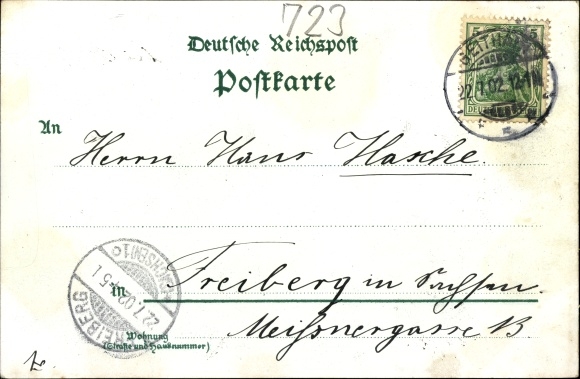 723
Deutsche Reichspost
Postkarte
GEITHAIN
22.7.02.12-1N.
An
Herrn Hans Hasche.
FREIBERG (SACHSEN) 1c
22.7.02. 4-5 N
in
Freiberg in Sachsen.
Meißnergasse
Wohnung
(Straße und Hausnummer)